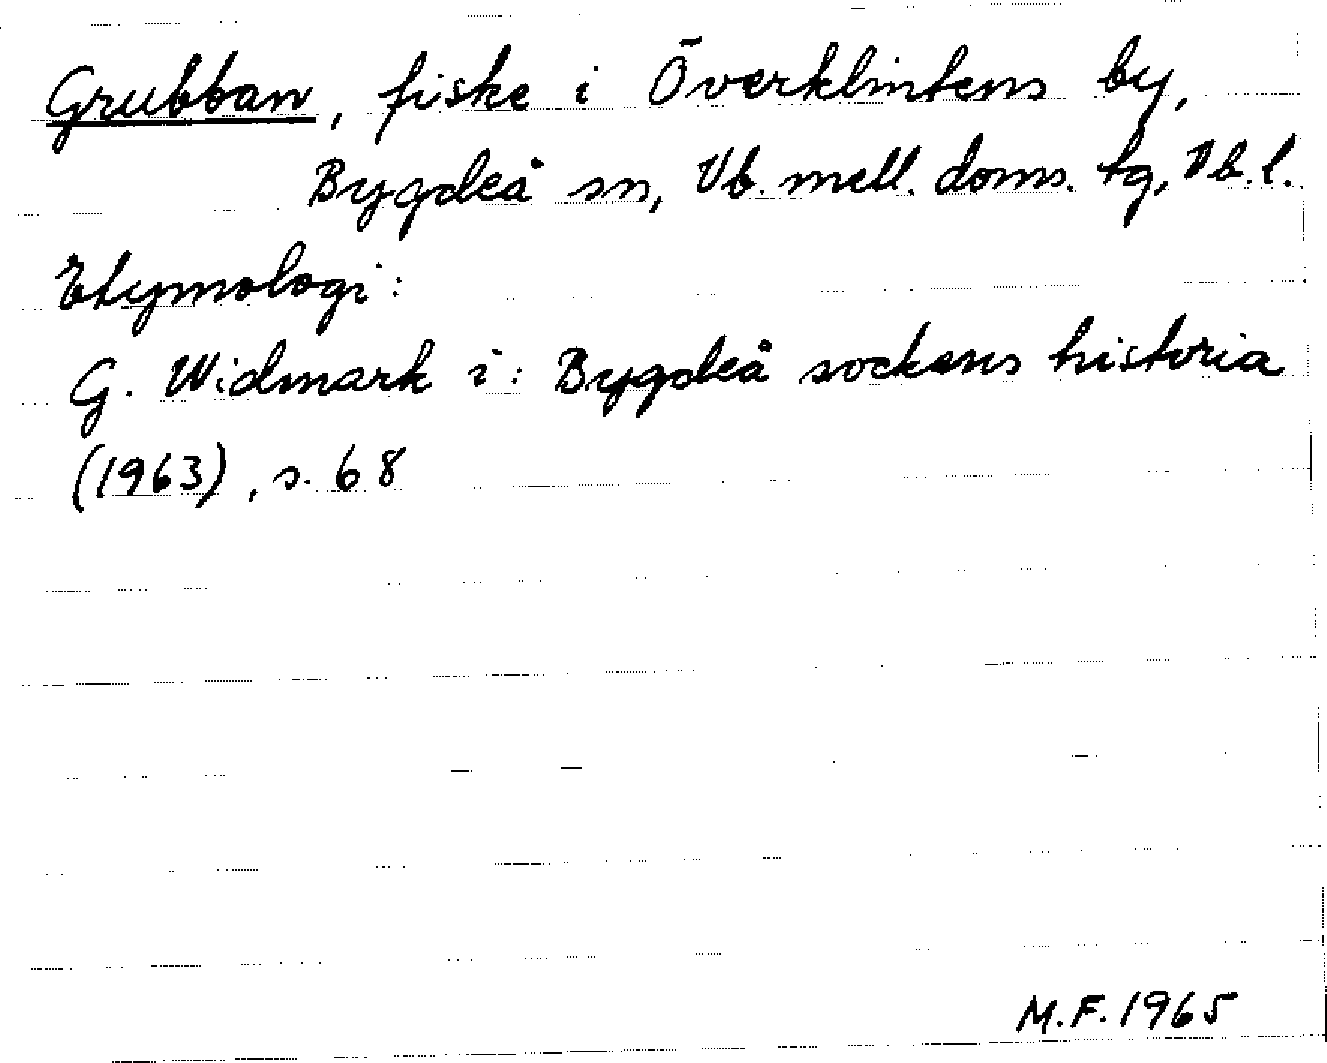 Grubban, fiske i Överklintens by,
Bygdeå sn, Vb. mell. doms. tg, Vb. l.
Etymologi:
G. Widmark i: Bygdeå sockens historia
(1963), s. 68
M.F. 1965